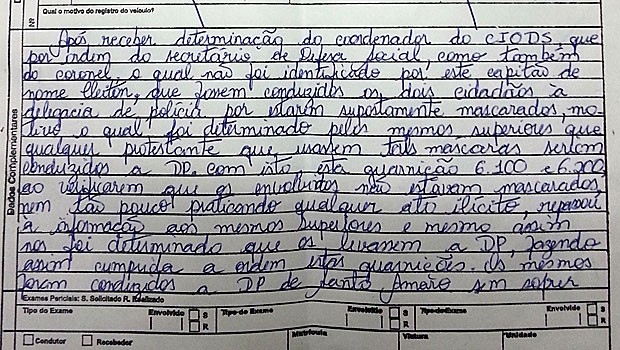 Nº
Qual o motivo do registro do veículo?
Dados Complementares
Após receber determinação do coordenador do CIODS, que
por ordem do secretário de Defesa Social, como também
do coronel, o qual não foi identificado por este capitão de
nome Cleiton, que fossem conduzidos os dois cidadãos à
delegacia de polícia por estarem supostamente mascarados, mo-
tivo o qual foi determinado pelos mesmos superiores que
qualquer protestante que usassem tais máscaras seriam
conduzidos a DP. com isto esta guarnição 6.100 e 6.200
ao verificarem que os envolvidos não estavam mascarados
nem tão pouco praticando qualquer ato ilícito, repassou
à informação aos mesmos superiores e mesmo assim
nos foi determinado que os levassem a DP, fazendo
assim cumprida a ordem estas guarnições. Os mesmos
foram conduzidos a DP de Santo Amaro sem sofrer
Exames Periciais: S. Solicitado R. Realizado
Tipo do Exame Envolvido S R Tipo do Exame Envolvido S R Tipo do Exame Envolvido S R
Condutor Recebedor Matrícula Viatura Unidade